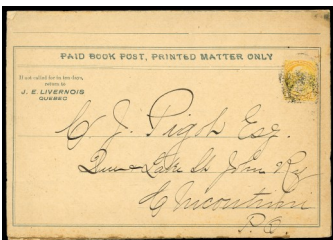 PAID BOOK POST, PRINTED MATTER ONLY
If not called for in ten days,
return to
J. E. LIVERNOIS
QUEBEC
J. Pigot Esq.
Lake St John Ry
Chicoutimi
P.Q.